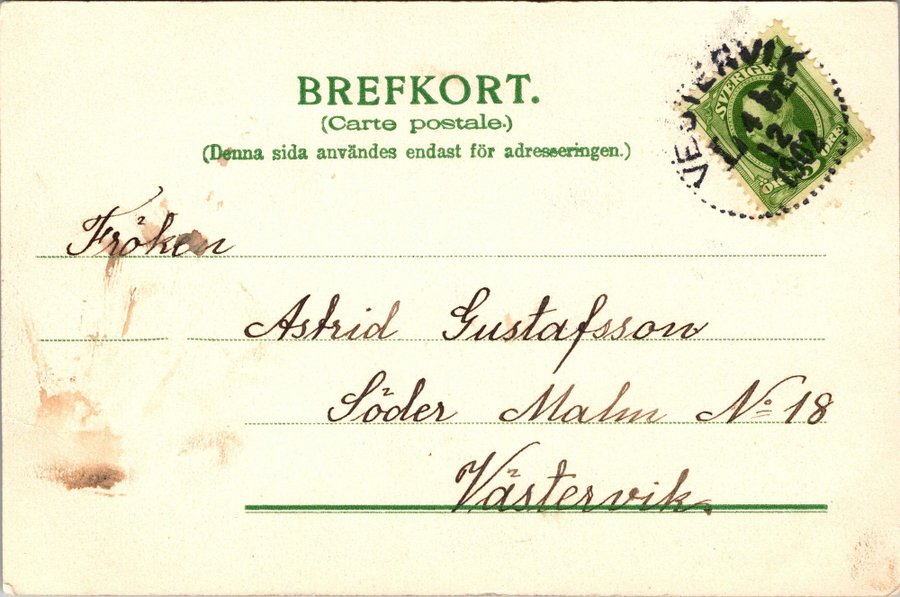 BREFKORT.
(Carte postale.)
(Denna sida användes endast för adresseringen.)
VESTERVIK
SVERIGE
12
1902
5
ÖRE
Fröken
Astrid Gustafsson
Söder Malm No 18
Västervik.